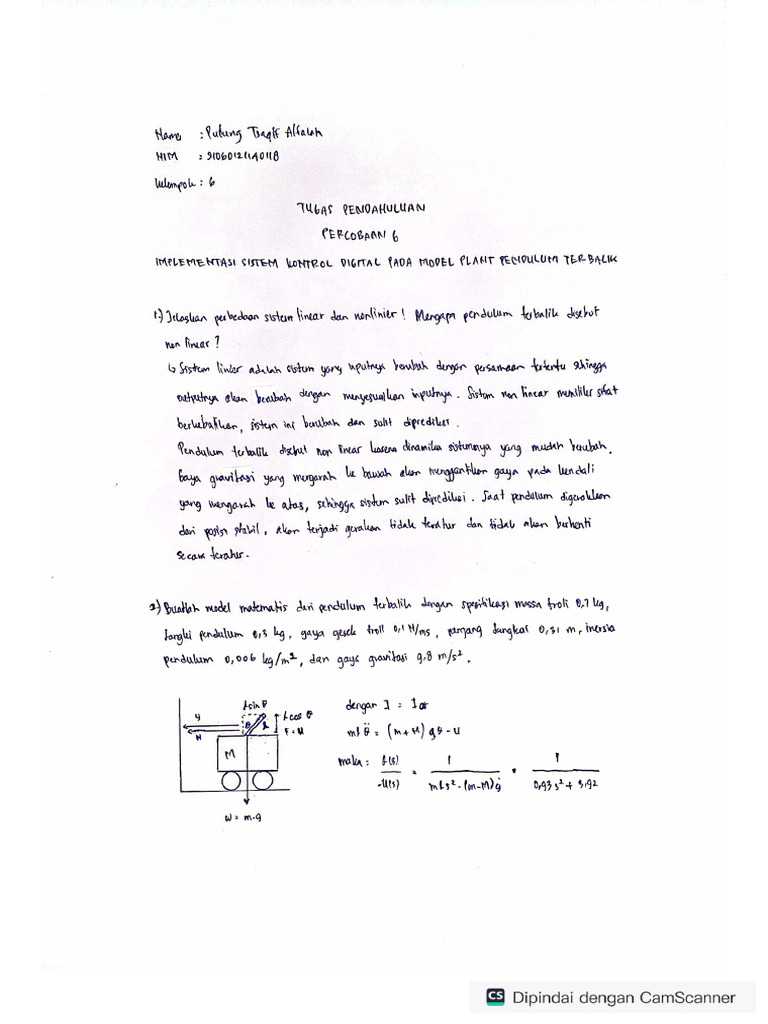 Nama : Putung Tsaqif Alfalah
NIM : 21060121140118
Kelompok : 6
TUGAS PENDAHULUAN
PERCOBAAN 6
IMPLEMENTASI SISTEM KONTROL DIGITAL PADA MODEL PLANT PENDULUM TERBALIK
1.) Jelaskan perbedaan sistem linear dan nonlinier ! Mengapa pendulum terbalik disebut
non linear ?
↳ Sistem linier adalah sistem yang inputnya berubah dengan persamaan tertentu sehingga
outputnya akan berubah dengan menyesuaikan inputnya. Sistem non linear memiliki sifat
berkebalikan, sistem ini berubah dan sulit diprediksi.
Pendulum terbalik disebut non linear karena dinamika sistemnya yang mudah berubah.
Gaya gravitasi yang mengarah ke bawah akan menggantikan gaya pada kendali
yang mengarah ke atas, sehingga sistem sulit diprediksi. Saat pendulum digerakkan
dari posisi stabil, akan terjadi gerakan tidak teratur dan tidak akan berhenti
secara teratur.
2) Buatlah model matematis dari pendulum terbalik dengan spesifikasi massa troli 0,7 kg,
tangki pendulum 0,3 kg, gaya gesek troli 0,1 N/ms, panjang tangkai 0,31 m, inersia
pendulum 0,006 kg/m², dan gaya gravitasi 9,8 m/s².
L sin θ
y
L cos θ
θ
N
F = U
M
w = m.g
dengan I = I
mlθ̈ = (m+M) gθ - u
maka : =
-U(s)
1
mLs² - (m-M)g
1
0,93 s² + 3,92
CS Dipindai dengan CamScanner